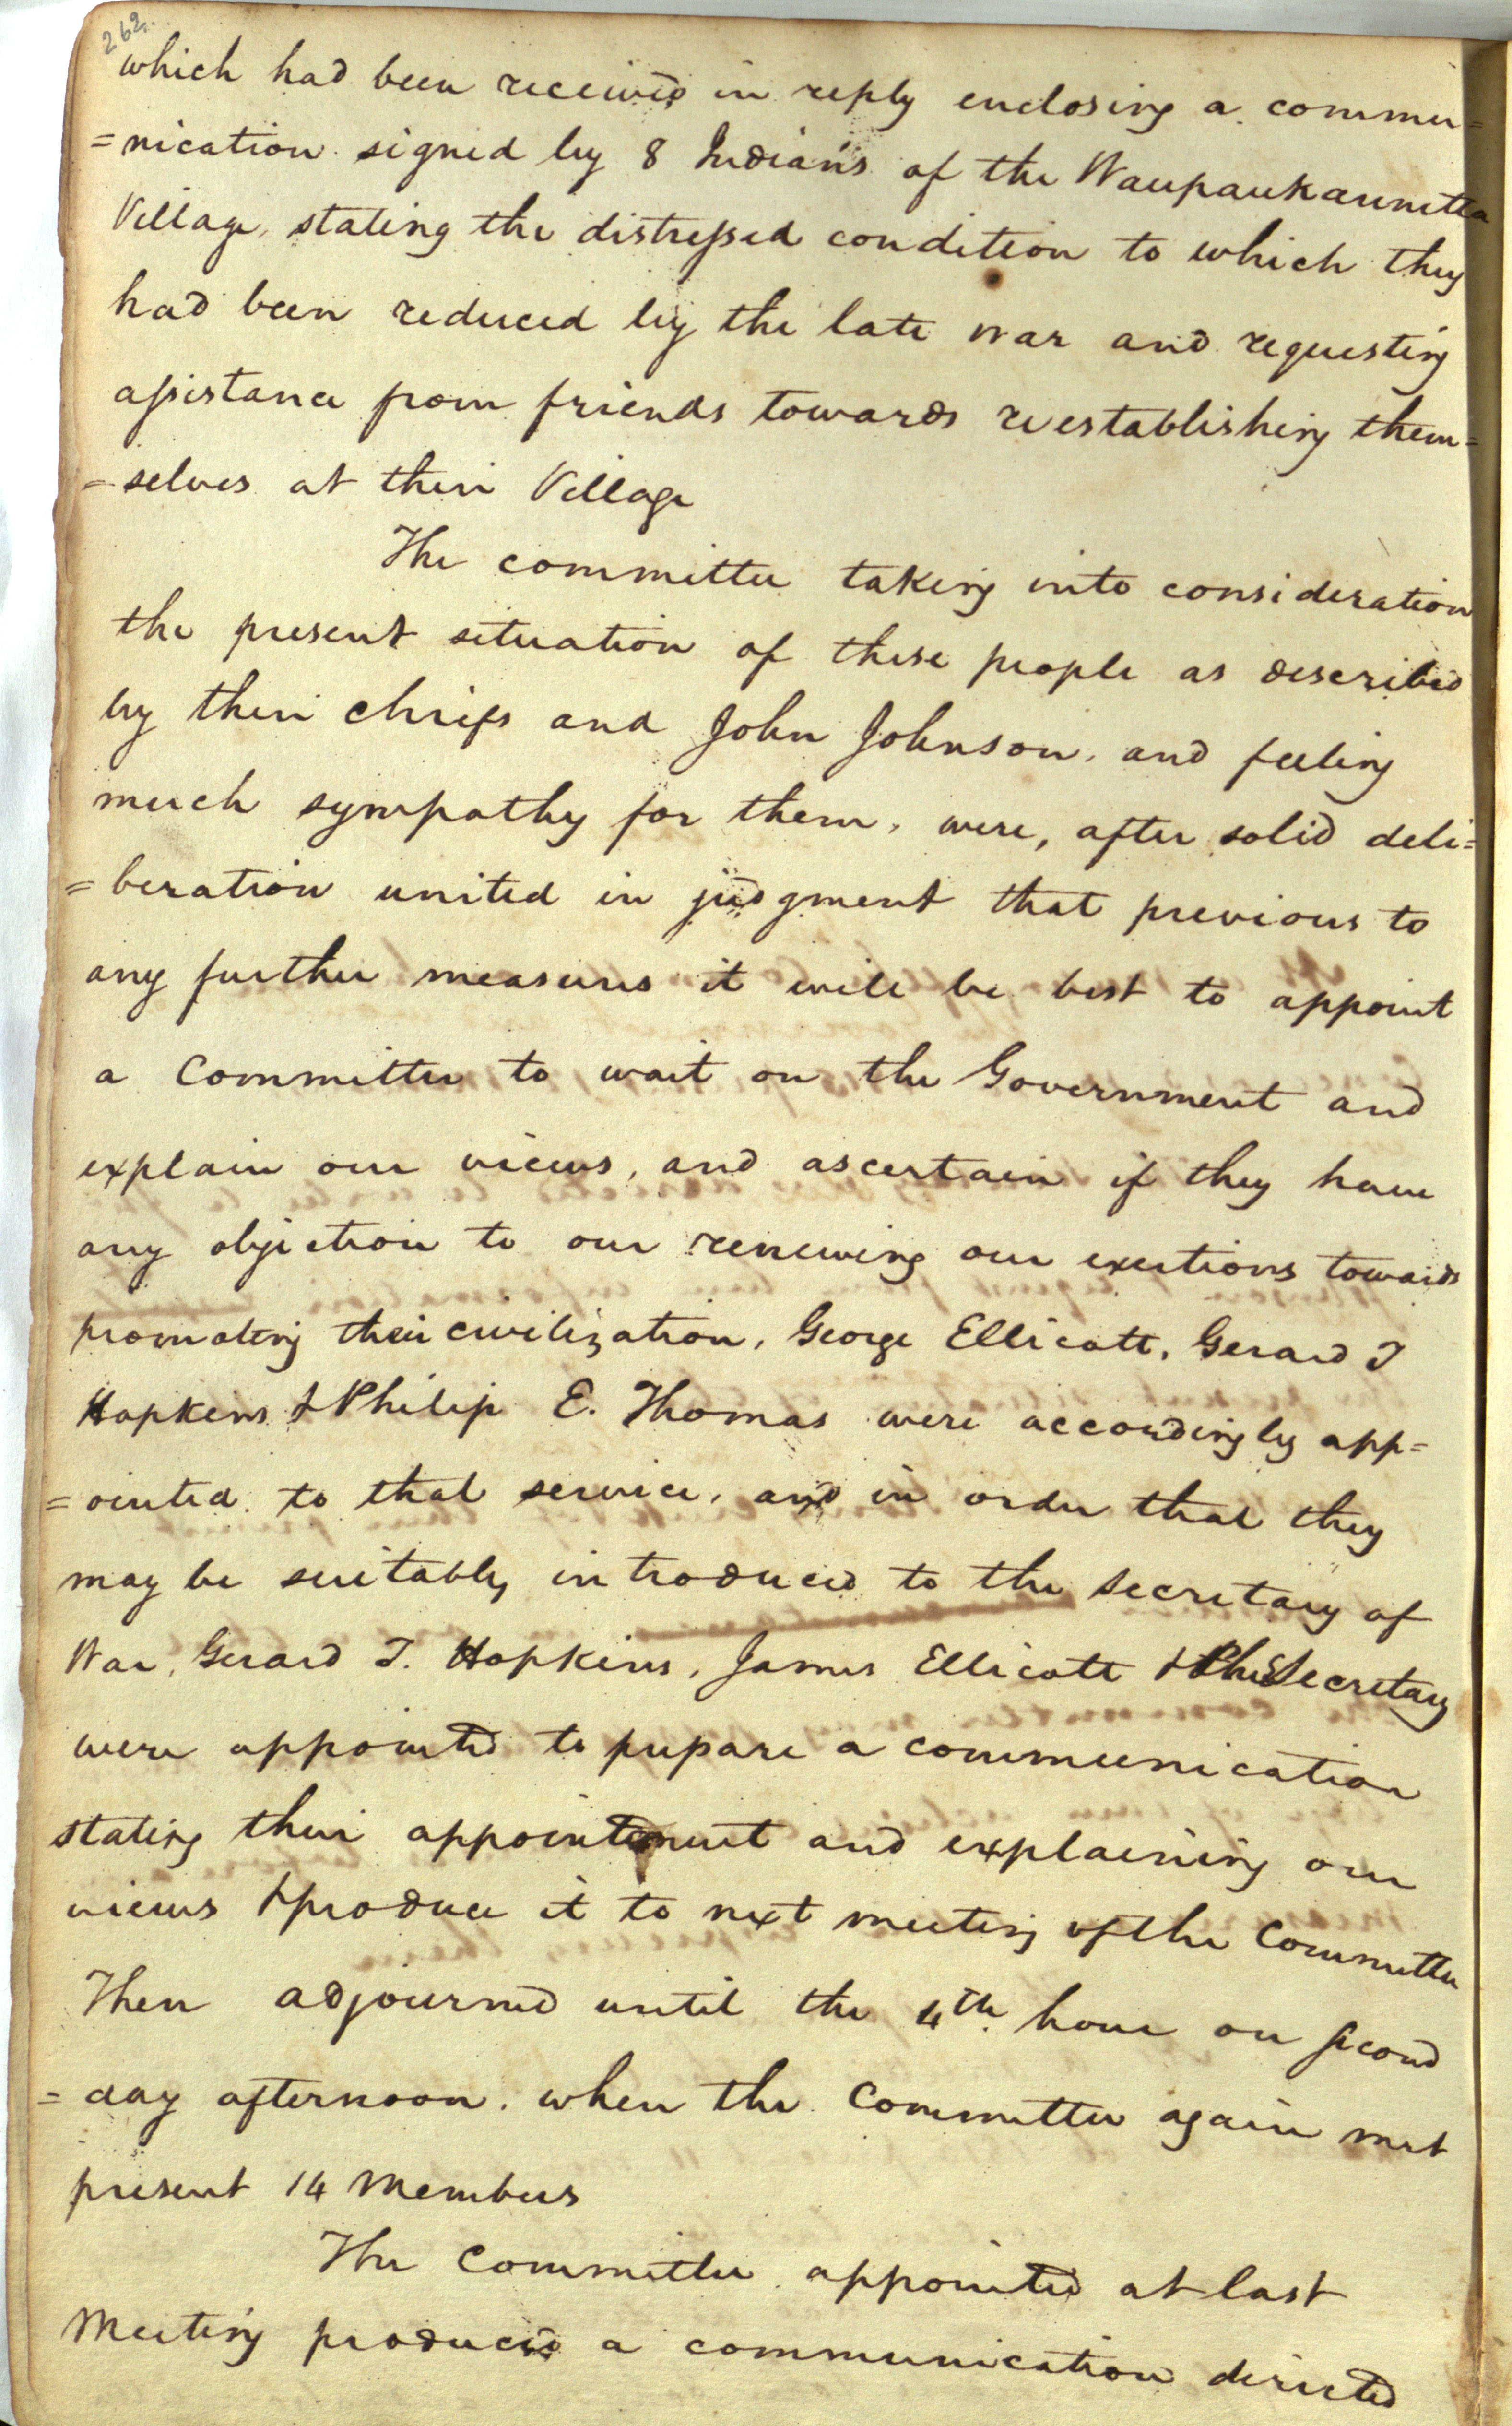 262.
which had been received in reply enclosing a commu=
=nication signed by 8 Indians of the Waupaukaunetta
Village, stating the distressed condition to which they
had been reduced by the late war and requesting
assistance from friends towards reestablishing them=
=selves at their Village
The committee taking into consideration
the present situation of these people as described
by their chiefs and John Johnson, and feeling
much sympathy for them, were, after solid deli=
=beration united in judgment that previous to
any further measures it will be best to appoint
a Committee to wait on the Government and
explain our views, and ascertain if they have
any objection to our renewing our exertions towards
promoting their civilization, George Ellicott, Gerard T
Hopkins & Philip E. Thomas were accordingly app=
=ointed to that service, and in order that they
may be suitably introduced to the Secretary of
War, Gerard T. Hopkins, James Ellicott & the Secretary
were appointed to prepare a communication
stating their appointment and explaining our
views & produce it to next meeting of the Committee
Then adjourned until the 4th. hour on second
=day afternoon. when the Committee again met
present 14 Members
The Committee appointed at last
Meeting produced a communication directed